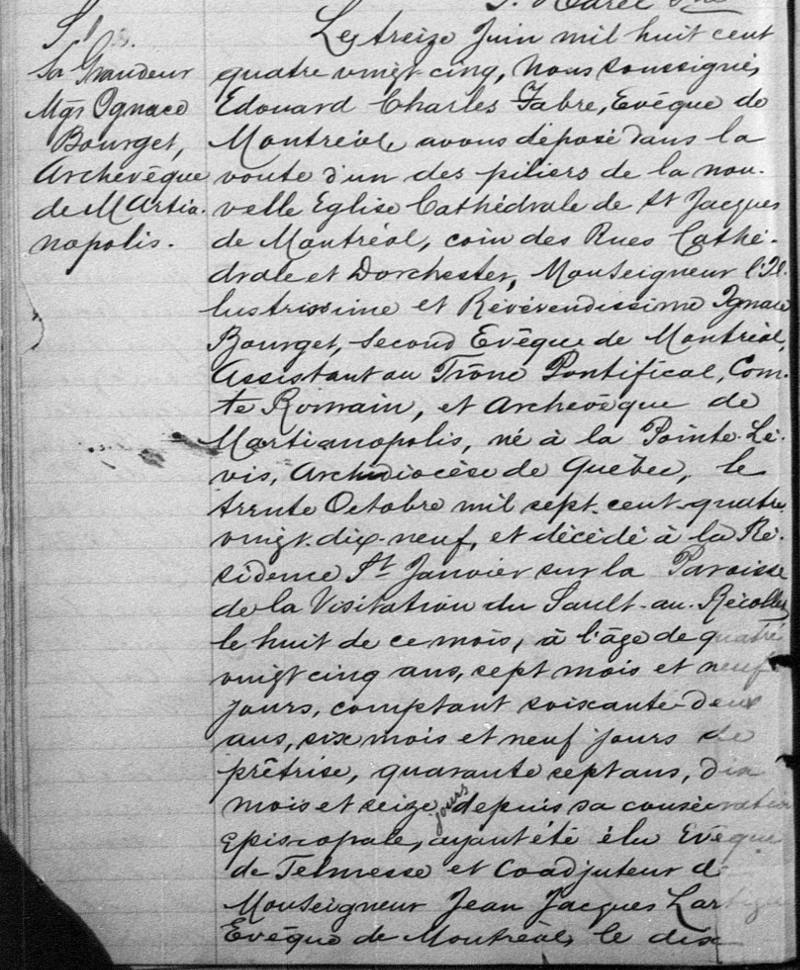 S 1
Sa Grandeur
Mgr Ignace
Bourget,
Archevêque
de Martia-
nopolis.
Le treize Juin mil huit cent
quatre vingt cinq, Nous soussigné,
Edouard Charles Fabre, Evêque de
Montréal, avons déposé dans la
voute d'un des piliers de la nou-
velle Eglise Cathédrale de St Jacques
de Montréal, coin des Rues Cathé-
drale et Dorchester, Monseigneur l'Il-
lustrissime et Révérendissime Ignace
Bourget, Second Evêque de Montréal,
Assistant au Trône Pontifical, Com-
te Romain, et Archevêque de
Martianopolis, né à la Pointe-Lé-
vis, Archidiocèse de Québec, le
trente Octobre mil sept-cent-quatre
vingt-dix-neuf, et décédé à la Ré-
sidence St Janvier sur la Paroisse
de la Visitation du Sault-au-Récollet
le huit de ce mois, à l'âge de quatre
vingt cinq ans, sept mois et neuf
jours, comptant soixante-deux
ans, six mois et neuf jours de
prêtrise, quarante sept ans, dix
mois et seize jours depuis sa consécration
Episcopale, ayant été élu Evêque
de Telmesse et Coadjuteur d
Monseigneur Jean Jacques Lartigue
Evêque de Montréal, le dix